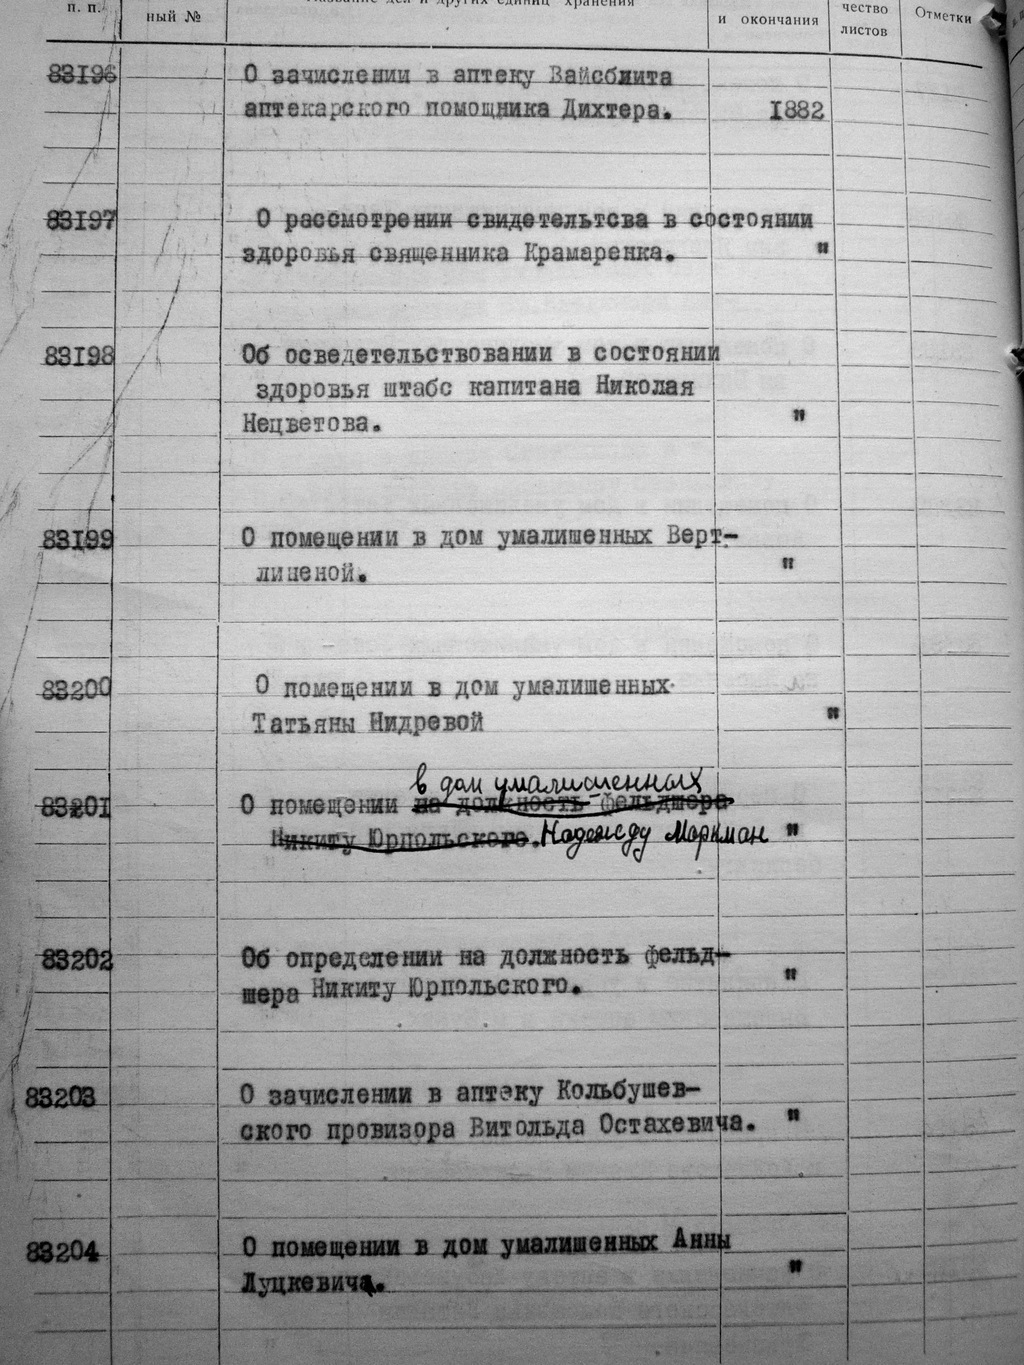 п. п.
ный №
Название дел и других единиц хранения
и окончания
чество
листов
Отметки
83196
О зачислении в аптеку Вайсблита
аптекарского помощника Дихтера. 1882
83197
О рассмотрении свидетельтсва в состоянии
здоровья священника Крамаренка. "
83198
Об осведетельствовании в состоянии
здоровья штабс капитана Николая
Нецветова. "
83199
О помещении в дом умалишенных Верт-
линеной. "
83200
О помещении в дом умалишенных
Татьяны Нидревой "
в дом умалишенных
83201
О помещении на должность фельдшера
Никиту Юрпольского. Надежду Маркман "
83202
Об определении на должность фельд-
шера Никиту Юрпольского. "
83203
О зачислении в аптеку Кольбушев-
ского провизора Витольда Остахевича. "
83204
О помещении в дом умалишенных Анны
Луцкевича. "